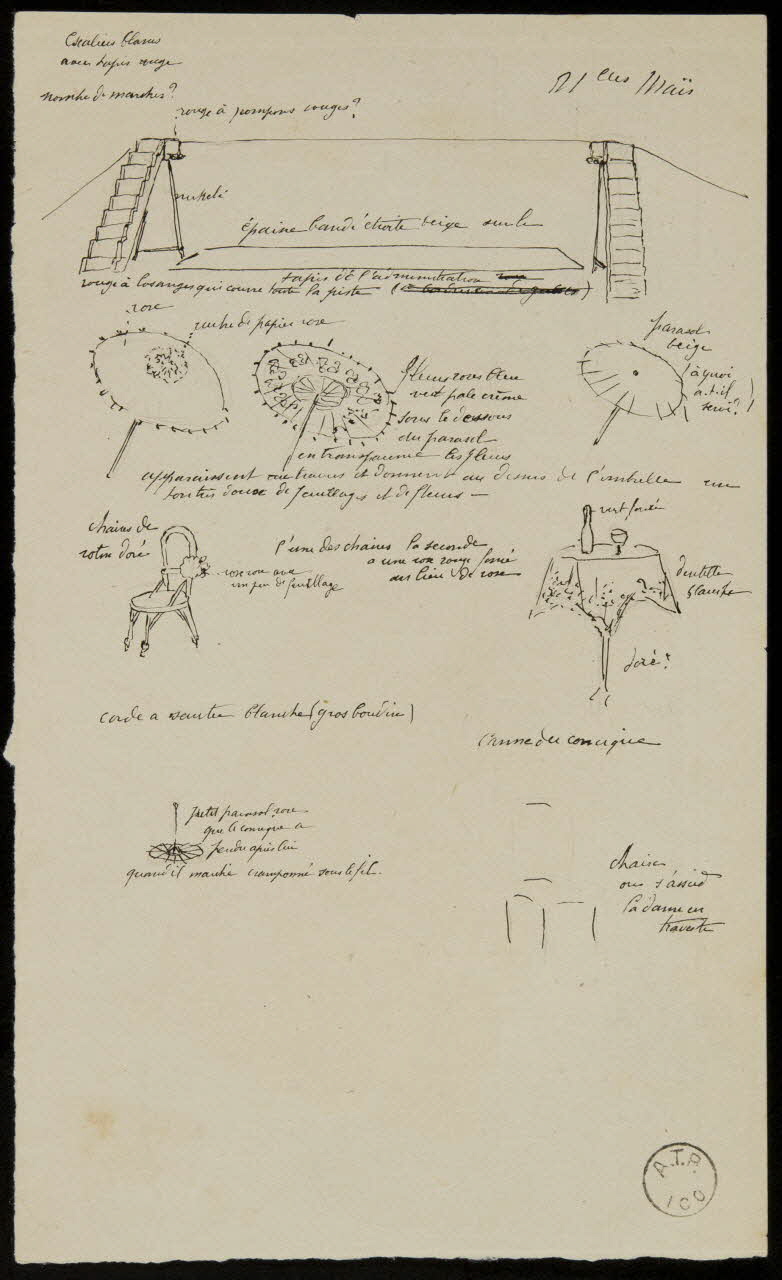 Escaliers blancs
avec tapis rouge
nombre de marches?
M ces Maïs
rouge à pompons rouges?
nickelé
épaisse bande étroite beige sur le
tapis de l'administration
rouge à losanges qui couvre toute la piste
rose
ruche de papier rose
fleurs roses bleu
vert pale crème
sous le dessous
du parasol
en transparence les fleurs
apparaissent au travers et donnent au dessus de l'ombrelle un
ton très doux de feuillages et de fleurs —
parasol
beige
(à quoi
a-t-il
servi?)
chaises de
rotin doré
rose rose avec
un peu de feuillage
l'une des chaises la seconde
a une rose rouge foncé
au lieu de rose
vert foncé
dentelle
blanche
doré?
corde a sauter blanche (gros boudin)
canne du comique
Petit parasol rose
que le comique a
pendu après lui
quand il marche cramponné sous le fil.
chaise
où s'assied
la dame en
travesti
A.T.P.
100